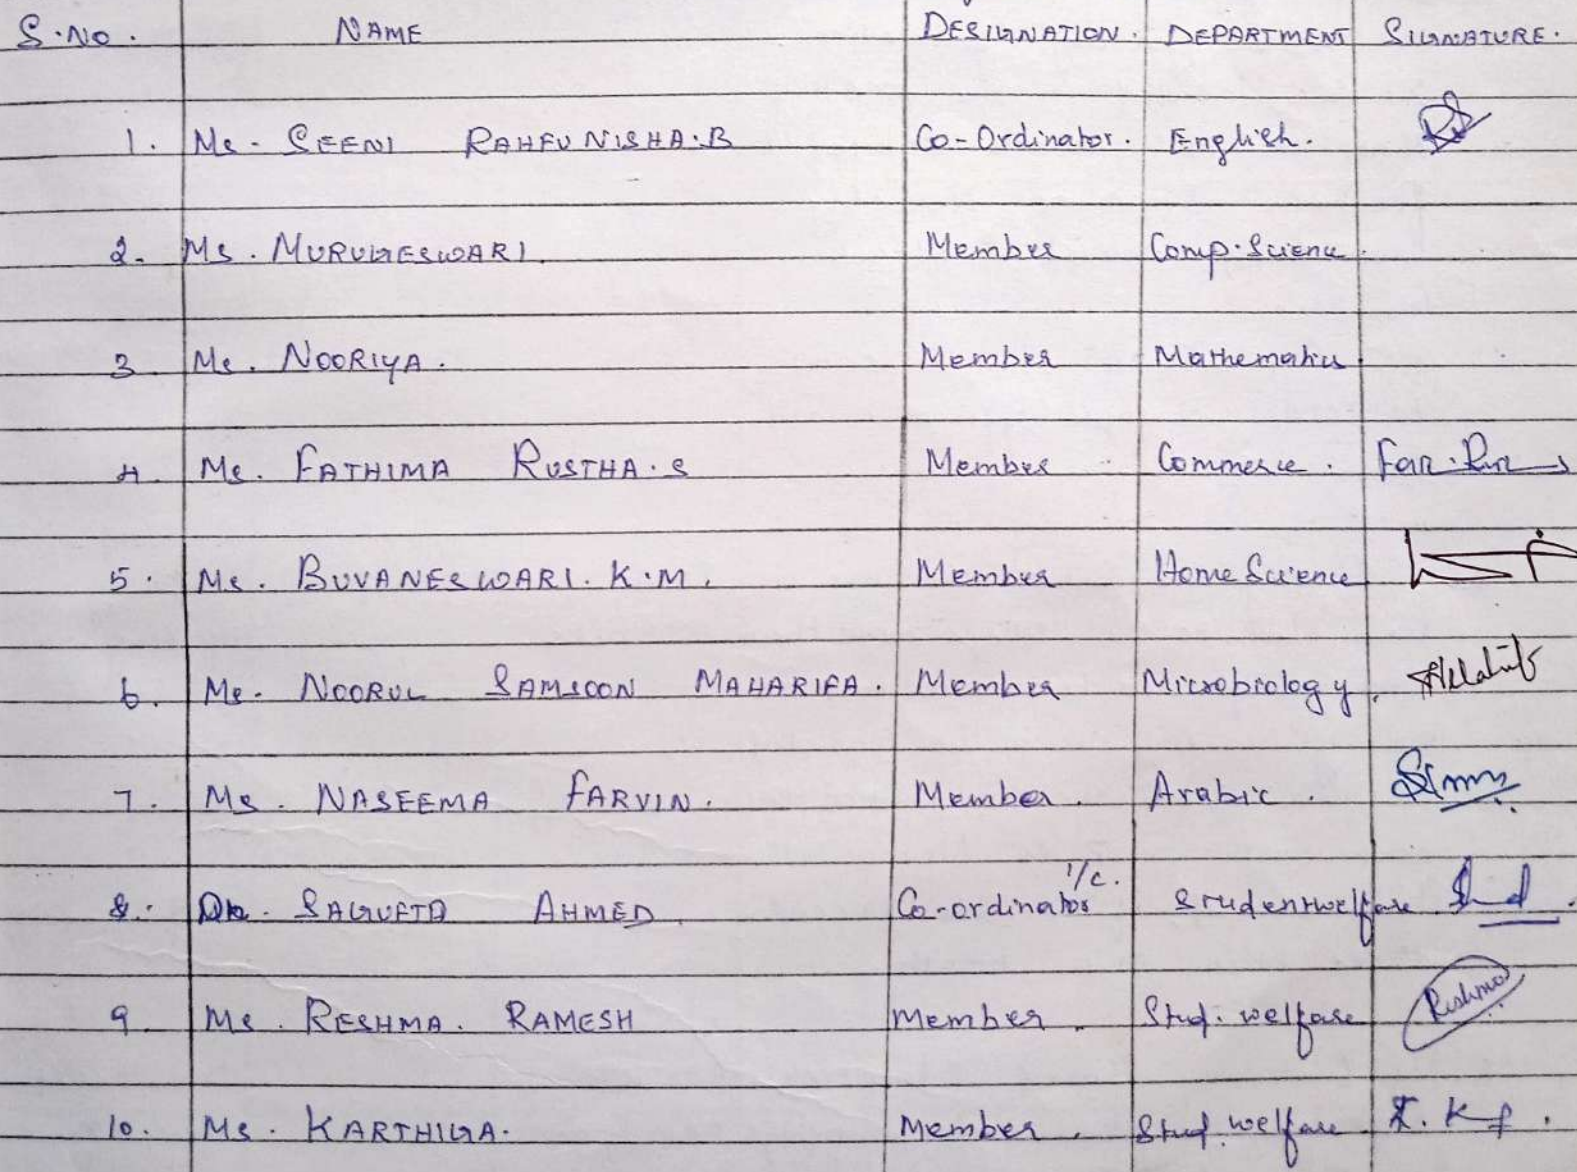 S.NO. NAME DESIGNATION. DEPARTMENT SIGNATURE.
1. Ms. SEENI RAHFUNISHA.B Co-Ordinator. English.
2. Ms. MURUGESWARI. Member Comp.Science.
3. Ms. NOORIYA. Member Mathematics
4. Ms. FATHIMA RUSTHA.S Member Commerce.
5. Ms. BUVANESWARI.K.M. Member Home Science
6. Ms. NOORUL SAMSOON MAHARIFA. Member Microbiology.
7. Ms. NASEEMA FARVIN. Member. Arabic.
8. Dr. SAGUFTA AHMED Co-ordinator I/C. Studentwelfare
9. Ms. RESHMA. RAMESH Member. Stud. welfare Reshma
10. Ms. KARTHIGA. Member. Stud. welfare